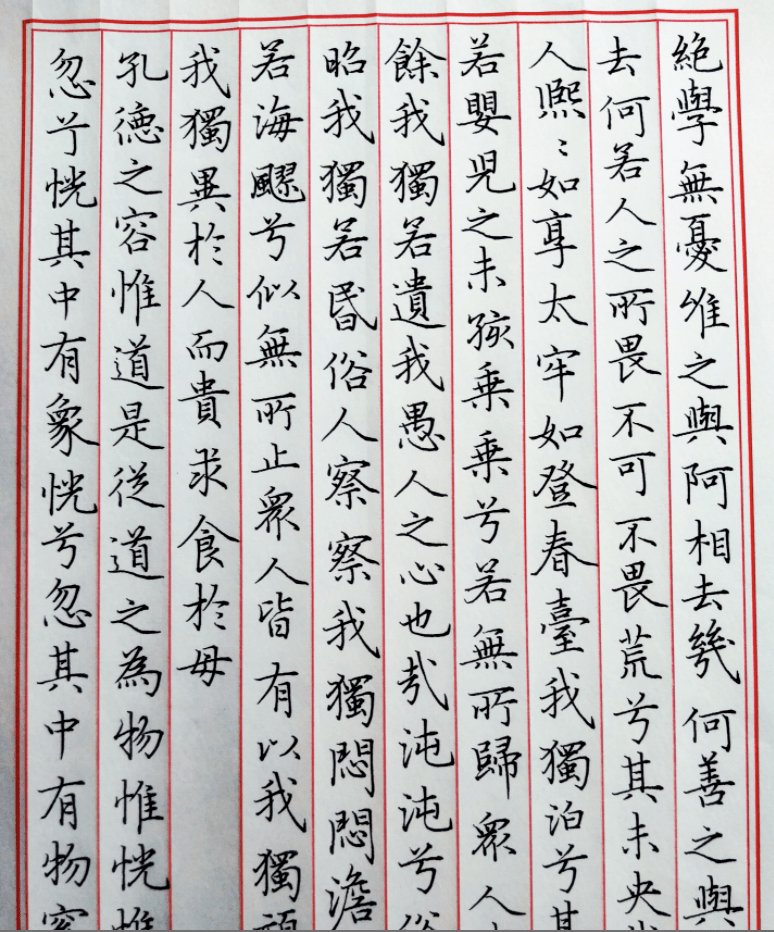 絕學無憂唯之與阿相去幾何善之與
去何若人之所畏不可不畏荒兮其未央
人熙〻如享太牢如登春臺我獨泊兮其
若嬰児之未孩乗乗兮若無所歸眾人
餘我獨若遺我愚人之心也哉沌沌兮俗
昭我獨若昏俗人察察我獨悶悶澹
若海飂兮似無所止眾人皆有以我獨頑
我獨異於人而貴求食於母
孔德之容惟道是從道之為物惟恍惟
忽兮恍其中有象恍兮忽其中有物窈